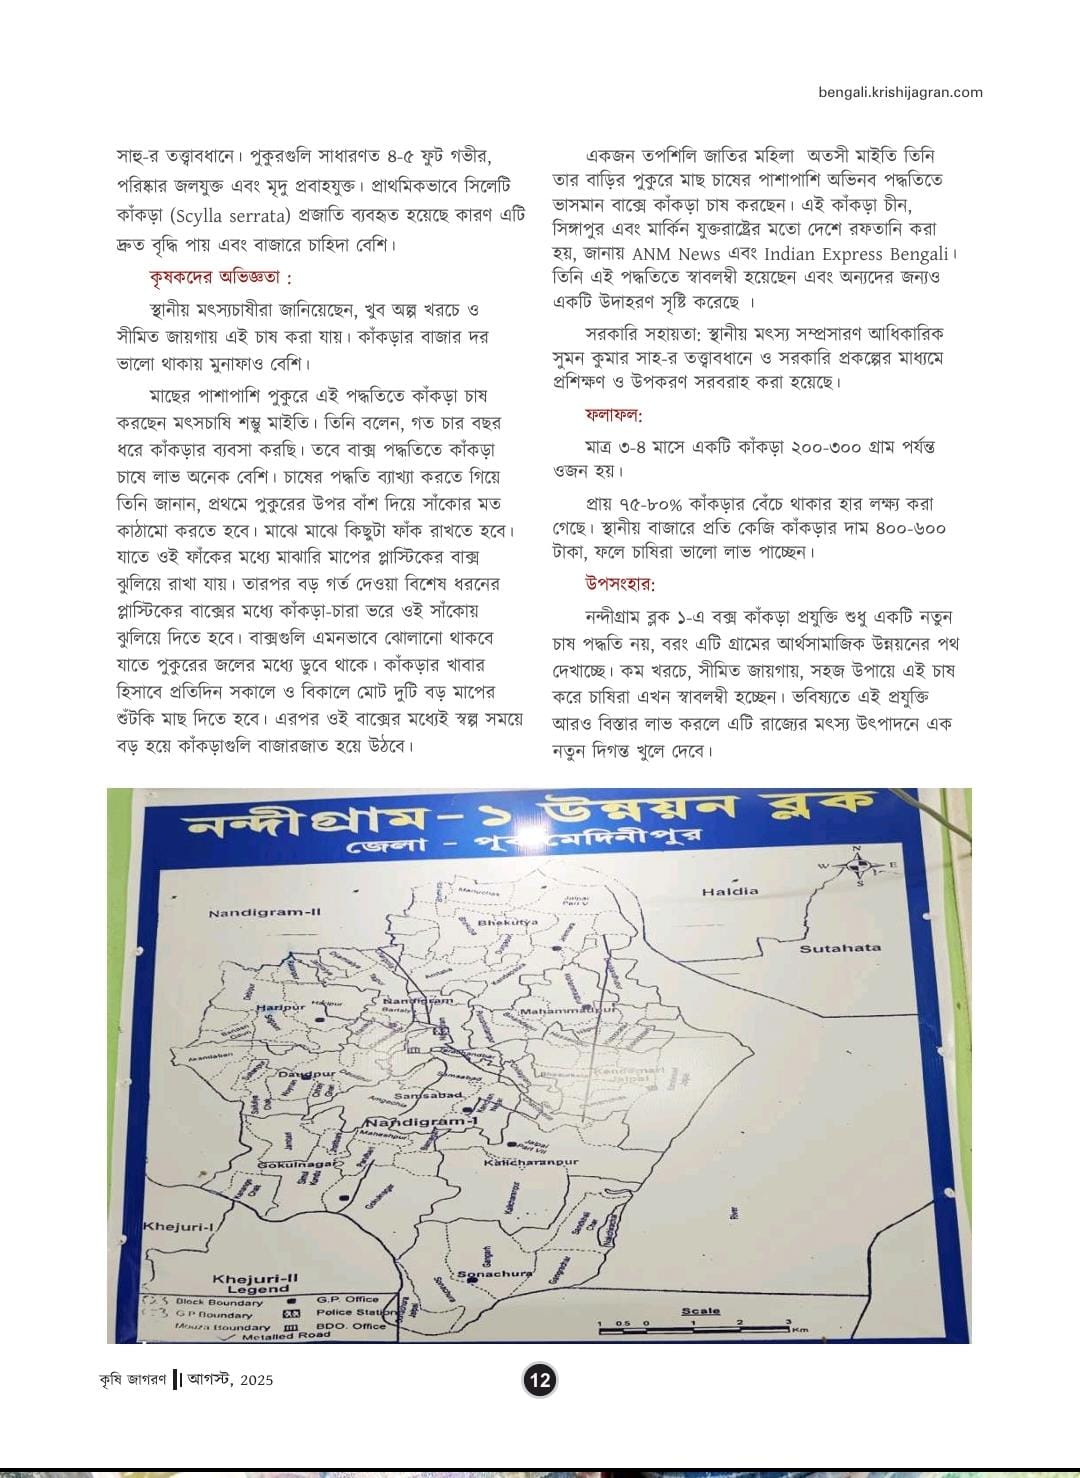 bengali.krishijagran.com
সাহু-র তত্ত্বাবধানে। পুকুরগুলি সাধারণত ৪-৫ ফুট গভীর,
পরিষ্কার জলযুক্ত এবং মৃদু প্রবাহযুক্ত। প্রাথমিকভাবে সিলেটি
কাঁকড়া (Scylla serrata) প্রজাতি ব্যবহৃত হয়েছে কারণ এটি
দ্রুত বৃদ্ধি পায় এবং বাজারে চাহিদা বেশি।
কৃষকদের অভিজ্ঞতা :
স্থানীয় মৎস্যচাষীরা জানিয়েছেন, খুব অল্প খরচে ও
সীমিত জায়গায় এই চাষ করা যায়। কাঁকড়ার বাজার দর
ভালো থাকায় মুনাফাও বেশি।
মাছের পাশাপাশি পুকুরে এই পদ্ধতিতে কাঁকড়া চাষ
করছেন মৎসচাষি শম্ভু মাইতি। তিনি বলেন, গত চার বছর
ধরে কাঁকড়ার ব্যবসা করছি। তবে বাক্স পদ্ধতিতে কাঁকড়া
চাষে লাভ অনেক বেশি। চাষের পদ্ধতি ব্যাখ্যা করতে গিয়ে
তিনি জানান, প্রথমে পুকুরের উপর বাঁশ দিয়ে সাঁকোর মত
কাঠামো করতে হবে। মাঝে মাঝে কিছুটা ফাঁক রাখতে হবে।
যাতে ওই ফাঁকের মধ্যে মাঝারি মাপের প্লাস্টিকের বাক্স
ঝুলিয়ে রাখা যায়। তারপর বড় গর্ত দেওয়া বিশেষ ধরনের
প্লাস্টিকের বাক্সের মধ্যে কাঁকড়া-চারা ভরে ওই সাঁকোয়
ঝুলিয়ে দিতে হবে। বাক্সগুলি এমনভাবে ঝোলানো থাকবে
যাতে পুকুরের জলের মধ্যে ডুবে থাকে। কাঁকড়ার খাবার
হিসাবে প্রতিদিন সকালে ও বিকালে মোট দুটি বড় মাপের
শুঁটকি মাছ দিতে হবে। এরপর ওই বাক্সের মধ্যেই স্বল্প সময়ে
বড় হয়ে কাঁকড়াগুলি বাজারজাত হয়ে উঠবে।
একজন তপশিলি জাতির মহিলা অতসী মাইতি তিনি
তার বাড়ির পুকুরে মাছ চাষের পাশাপাশি অভিনব পদ্ধতিতে
ভাসমান বাক্সে কাঁকড়া চাষ করছেন। এই কাঁকড়া চীন,
সিঙ্গাপুর এবং মার্কিন যুক্তরাষ্ট্রের মতো দেশে রফতানি করা
হয়, জানায় ANM News এবং Indian Express Bengali।
তিনি এই পদ্ধতিতে স্বাবলম্বী হয়েছেন এবং অন্যদের জন্যও
একটি উদাহরণ সৃষ্টি করেছে ।
সরকারি সহায়তা: স্থানীয় মৎস্য সম্প্রসারণ আধিকারিক
সুমন কুমার সাহ-র তত্ত্বাবধানে ও সরকারি প্রকল্পের মাধ্যমে
প্রশিক্ষণ ও উপকরণ সরবরাহ করা হয়েছে।
ফলাফল:
মাত্র ৩-৪ মাসে একটি কাঁকড়া ২০০-৩০০ গ্রাম পর্যন্ত
ওজন হয়।
প্রায় ৭৫-৮০% কাঁকড়ার বেঁচে থাকার হার লক্ষ্য করা
গেছে। স্থানীয় বাজারে প্রতি কেজি কাঁকড়ার দাম ৪০০-৬০০
টাকা, ফলে চাষিরা ভালো লাভ পাচ্ছেন।
উপসংহার:
নন্দীগ্রাম ব্লক ১-এ বক্স কাঁকড়া প্রযুক্তি শুধু একটি নতুন
চাষ পদ্ধতি নয়, বরং এটি গ্রামের আর্থসামাজিক উন্নয়নের পথ
দেখাচ্ছে। কম খরচে, সীমিত জায়গায়, সহজ উপায়ে এই চাষ
করে চাষিরা এখন স্বাবলম্বী হচ্ছেন। ভবিষ্যতে এই প্রযুক্তি
আরও বিস্তার লাভ করলে এটি রাজ্যের মৎস্য উৎপাদনে এক
নতুন দিগন্ত খুলে দেবে।
নন্দীগ্রাম - ১ উন্নয়ন ব্লক
জেলা - পূর্ব মেদিনীপুর
N
W E
S
Haldia
Nandigram-II
Jalpai
Part V
Bhekutya
Sutahata
Haripur
Nandigram
Mahammadpur
Daudpur
Samsabad
Kendemari
Jalpai
Nandigram-I
Maheshpur
Jalpai
Part VII
Gokulnagar
Kalicharanpur
Gokulnagar
Kalicharanpur
River
Khejuri-I
Gangra
Sonachura
Khejuri-II
Legend
Block Boundary
G.P. Office
G P Boundary
Police Station
Mouza Boundary
BDO. Office
Metalled Road
Scale
1 0.5 0 1 2 3
Km
কৃষি জাগরণ || আগস্ট, 2025
12